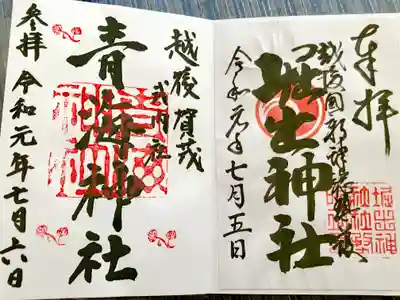 奉拝
越後国
堀出神社
令和元年七月五日
越後賀茂
式内社
青海神社
参拝 令和元年七月六日